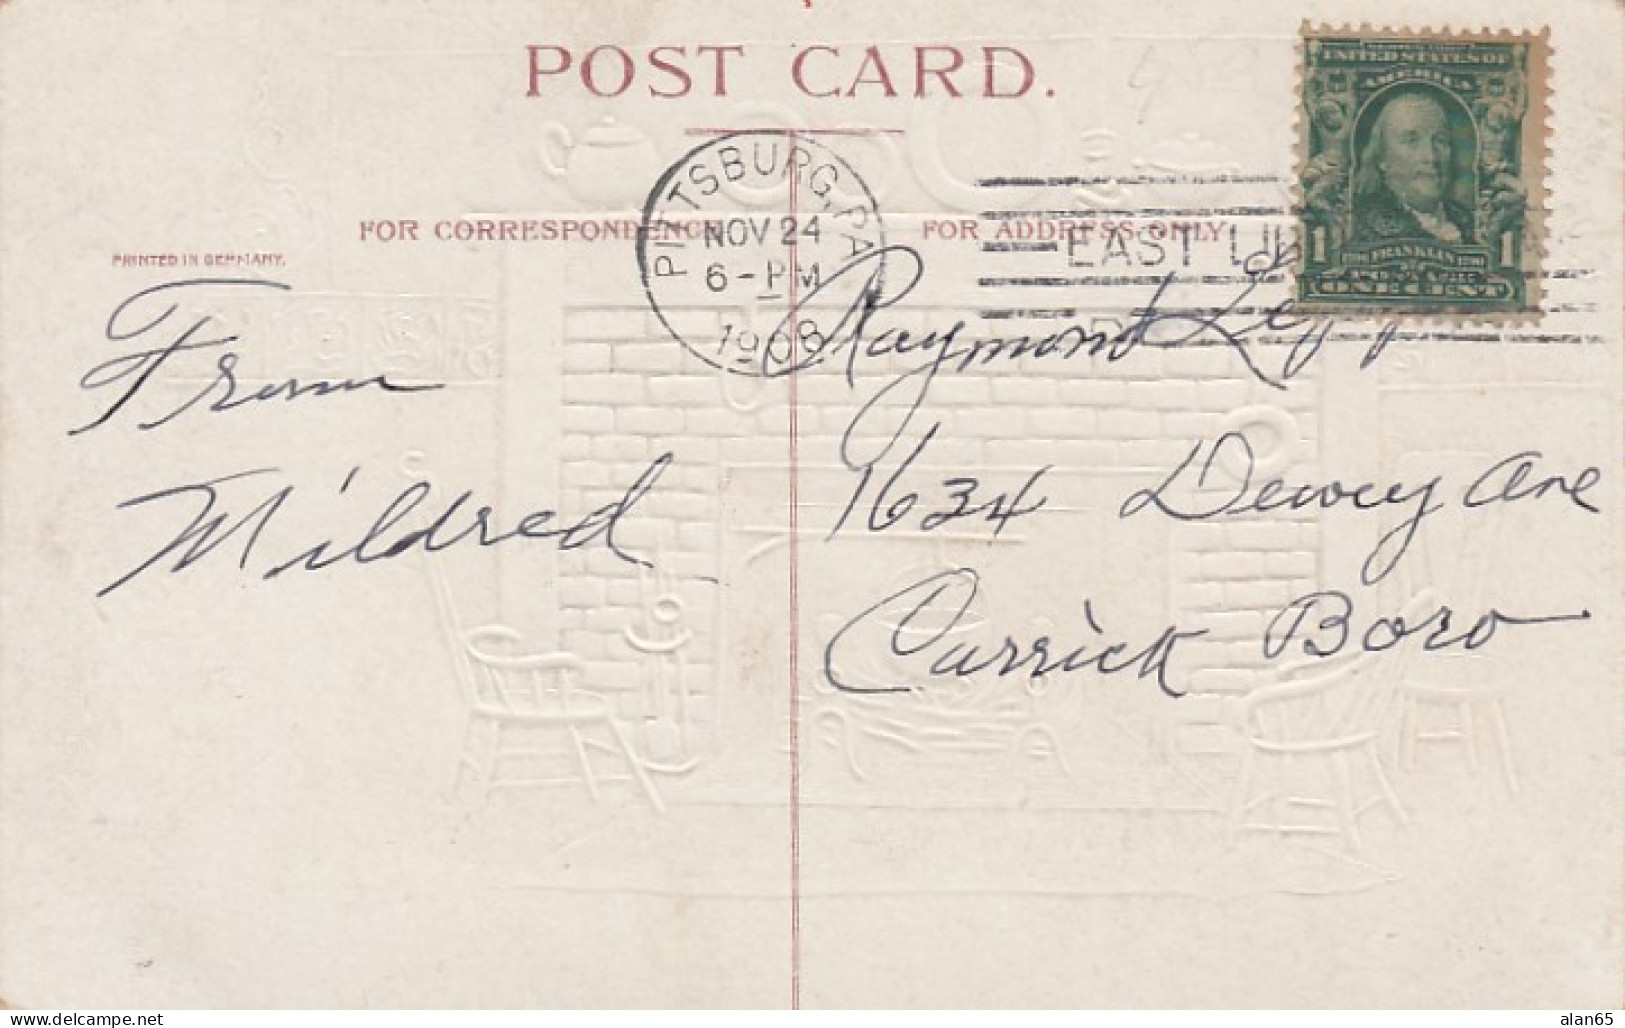 POST CARD.
PITTSBURG, PA
NOV 24
6-PM
1908
EAST
FOR CORRESPONDENCE
FOR ADDRESS ONLY
PRINTED IN GERMANY.
UNITED STATES OF
AMERICA
1 FRANKLIN 1
ONE CENT
From
Mildred
Raymond
1634 Dewey Ave
Carrick Boro
alan65